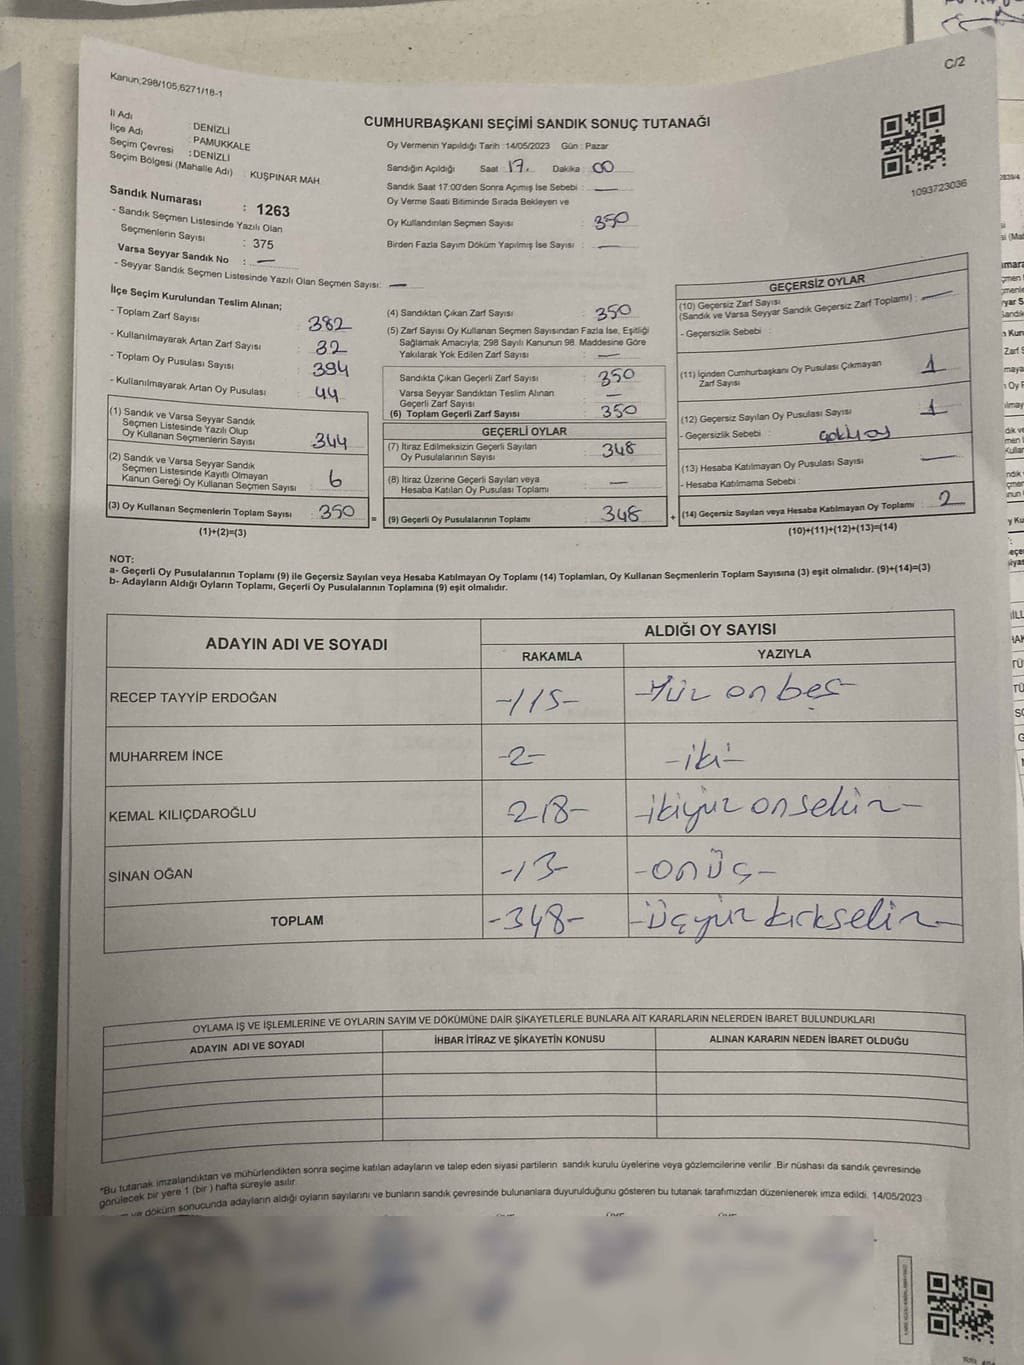 C/2
Kanun;298/105,6271/18-1
1093723036
İl Adı : DENİZLİ
İlçe Adı : PAMUKKALE
Seçim Çevresi : DENİZLİ
Seçim Bölgesi (Mahalle Adı) : KUŞPINAR MAH
Sandık Numarası : 1263
- Sandık Seçmen Listesinde Yazılı Olan
Seçmenlerin Sayısı : 375
Varsa Seyyar Sandık No : —
- Seyyar Sandık Seçmen Listesinde Yazılı Olan Seçmen Sayısı: —
CUMHURBAŞKANI SEÇİMİ SANDIK SONUÇ TUTANAĞI
Oy Vermenin Yapıldığı Tarih :14/05/2023 Gün : Pazar
Sandığın Açıldığı Saat 17. Dakika : 00
Sandık Saat 17:00'den Sonra Açımış İse Sebebi : —
Oy Verme Saati Bitiminde Sırada Bekleyen ve
Oy Kullandırılan Seçmen Sayısı : 350
Birden Fazla Sayım Döküm Yapılmış İse Sayısı : —
İlçe Seçim Kurulundan Teslim Alınan;
- Toplam Zarf Sayısı : 382
- Kullanılmayarak Artan Zarf Sayısı : 32
- Toplam Oy Pusulası Sayısı : 394
- Kullanılmayarak Artan Oy Pusulası : 44
(1) Sandık ve Varsa Seyyar Sandık
Seçmen Listesinde Yazılı Olup
Oy Kullanan Seçmenlerin Sayısı : 344
(2) Sandık ve Varsa Seyyar Sandık
Seçmen Listesinde Kayıtlı Olmayan
Kanun Gereği Oy Kullanan Seçmen Sayısı : 6
(3) Oy Kullanan Seçmenlerin Toplam Sayısı : 350
(1)+(2)=(3)
(4) Sandıktan Çıkan Zarf Sayısı : 350
(5) Zarf Sayısı Oy Kullanan Seçmen Sayısından Fazla İse, Eşitliği
Sağlamak Amacıyla; 298 Sayılı Kanunun 98. Maddesine Göre
Yakılarak Yok Edilen Zarf Sayısı : —
Sandıkta Çıkan Geçerli Zarf Sayısı : 350
Varsa Seyyar Sandıktan Teslim Alınan
Geçerli Zarf Sayısı : —
(6) Toplam Geçerli Zarf Sayısı : 350
GEÇERLİ OYLAR
(7) İtiraz Edilmeksizin Geçerli Sayılan
Oy Pusulalarının Sayısı : 348
(8) İtiraz Üzerine Geçerli Sayılan veya
Hesaba Katılan Oy Pusulası Toplamı : —
= (9) Geçerli Oy Pusulalarının Toplamı : 348 +
GEÇERSİZ OYLAR
(10) Geçersiz Zarf Sayısı
(Sandık ve Varsa Seyyar Sandık Geçersiz Zarf Toplamı) : —
- Geçersizlik Sebebi :
(11) İçinden Cumhurbaşkanı Oy Pusulası Çıkmayan
Zarf Sayısı : 1
(12) Geçersiz Sayılan Oy Pusulası Sayısı : 1
- Geçersizlik Sebebi :
(13) Hesaba Katılmayan Oy Pusulası Sayısı : —
- Hesaba Katılmama Sebebi :
(14) Geçersiz Sayılan veya Hesaba Katılmayan Oy Toplamı : 2
(10)+(11)+(12)+(13)=(14)
NOT:
a- Geçerli Oy Pusulalarının Toplamı (9) ile Geçersiz Sayılan veya Hesaba Katılmayan Oy Toplamı (14) Toplamları, Oy Kullanan Seçmenlerin Toplam Sayısına (3) eşit olmalıdır. (9)+(14)=(3)
b- Adayların Aldığı Oyların Toplamı, Geçerli Oy Pusulalarının Toplamına (9) eşit olmalıdır.
ADAYIN ADI VE SOYADI ALDIĞI OY SAYISI
RAKAMLA YAZIYLA
RECEP TAYYİP ERDOĞAN -115- -Yüz on beş-
MUHARREM İNCE -2- -iki-
KEMAL KILIÇDAROĞLU 218- -ikiyüz onsekiz-
SİNAN OĞAN -13- -onüç-
TOPLAM -348- -Üçyüz kırksekiz-
OYLAMA İŞ VE İŞLEMLERİNE VE OYLARIN SAYIM VE DÖKÜMÜNE DAİR ŞİKAYETLERLE BUNLARA AİT KARARLARIN NELERDEN İBARET BULUNDUKLARI
ADAYIN ADI VE SOYADI İHBAR İTİRAZ VE ŞİKAYETİN KONUSU ALINAN KARARIN NEDEN İBARET OLDUĞU
*Bu tutanak imzalandıktan ve mühürlendikten sonra seçime katılan adayların ve talep eden siyasi partilerin sandık kurulu üyelerine veya gözlemcilerine verilir .Bir nüshası da sandık çevresinde
görülecek bir yere 1 (bir ) hafta süreyle asılır.
ve döküm sonucunda adayların aldığı oyların sayılarını ve bunların sandık çevresinde bulunanlara duyurulduğunu gösteren bu tutanak tarafımızdan düzenlenerek imza edildi. 14/05/2023